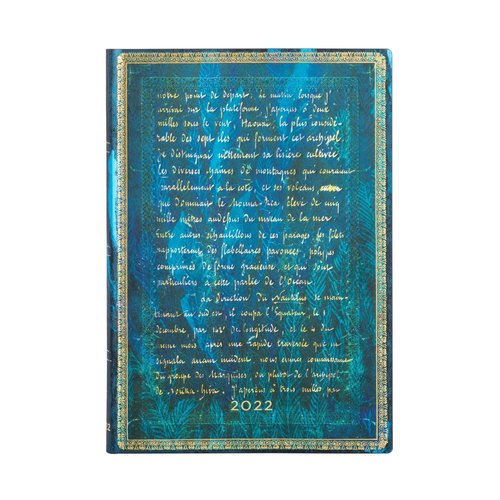 notre point de départ. Le matin lorsque j'
arrivai sur la plateforme, j'aperçus à deux
milles sous le vent, Haouaï, la plus considé-
rable des sept îles qui forment cet archipel
je distinguai nettement sa lisière cultivée,
les diverses chaînes de montagnes qui courent
parallèlement à la côte, et ses volcans
que dominait le Mouna-Rea, élevé de cinq
mille mètres au dessus du niveau de la mer
Entre autres échantillons de ces parages, les filets
rapportèrent des flabellaires pavonées, polypes
comprimés de forme gracieuse, et qui sont
particuliers à cette partie de l'Océan
La direction du Nautilus se main-
au sud est, il coupa l'Equateur, le 1
décembre, par 142° de longitude, et le 4 du
même mois, après une rapide traversée que
signala aucun incident, nous eûmes connaissance
du groupe des Marquises,
de Nouka-hiva. J'aperçus à trois milles par
2022
2